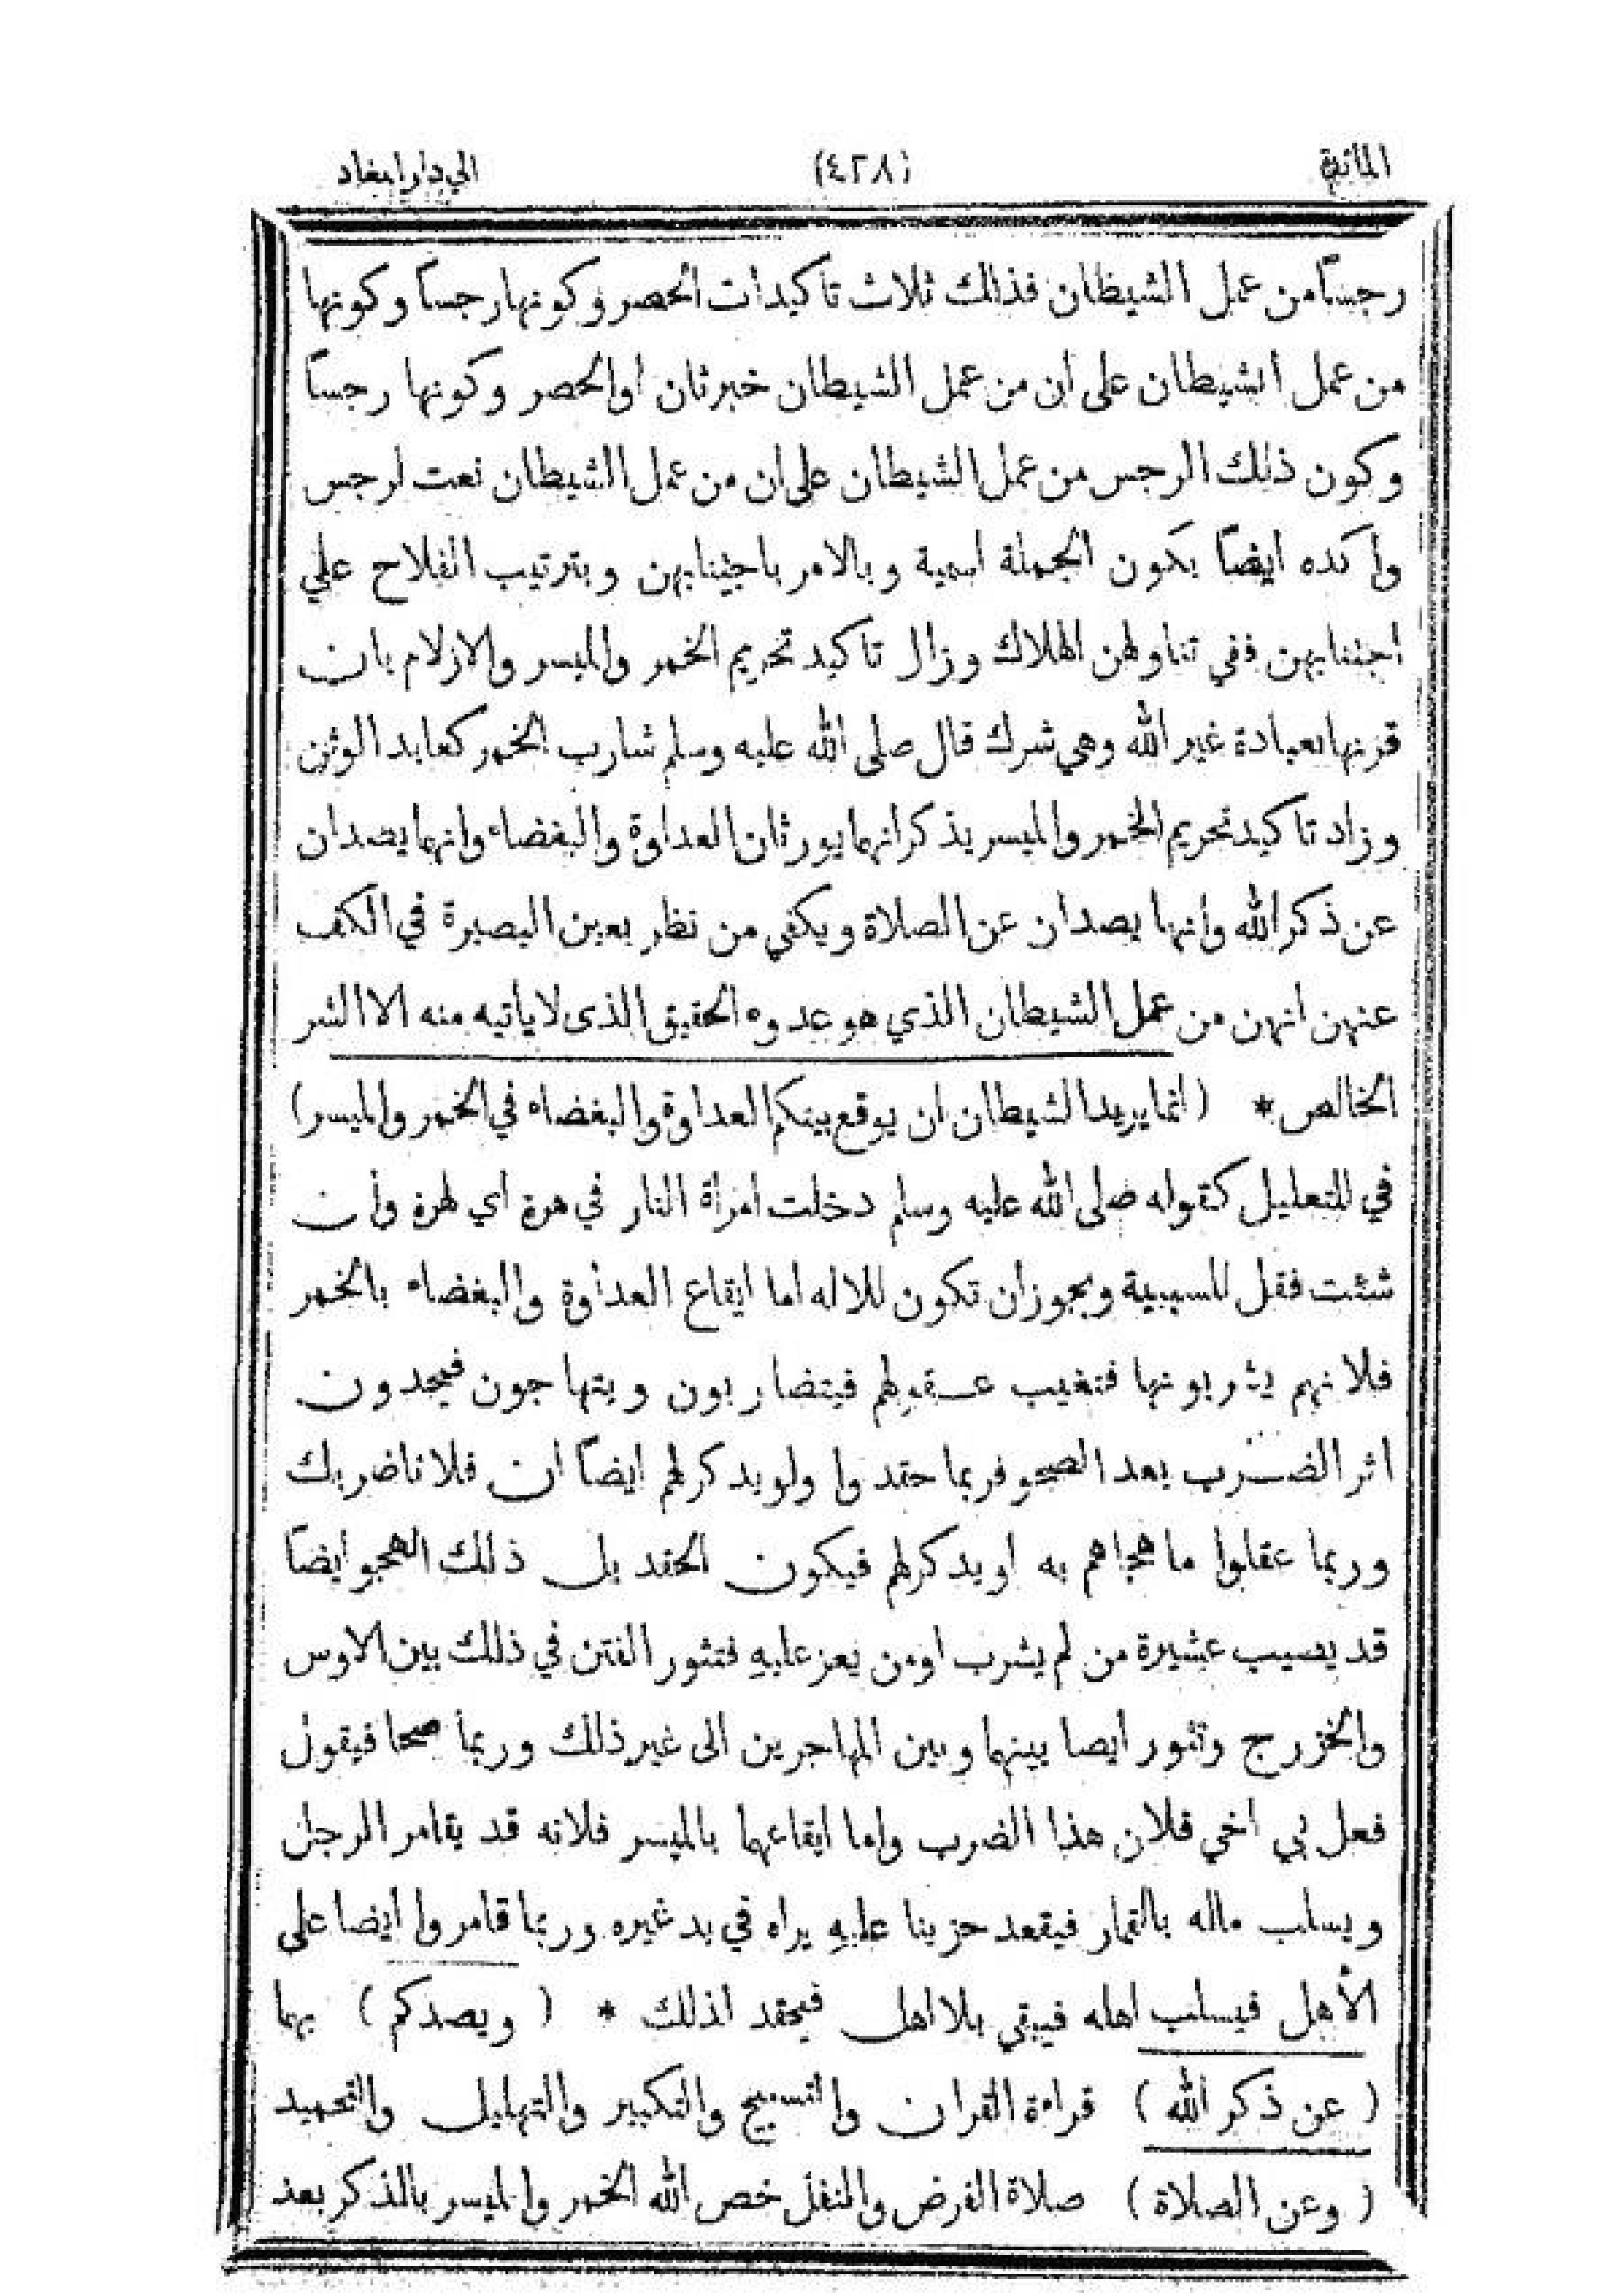 المائدة (٤٢٨) الي دار المعاد
رجسًا من عمل الشيطان فذلك ثلاث تأكيدات الحصر وكونها رجسًا وكونها
من عمل الشيطان على ان من عمل الشيطان خبر ثان او الحصر وكونها رجسًا
وكون ذلك الرجس من عمل الشيطان على ان من عمل الشيطان نعت لرجس
وأكده ايضًا بكون الجملة اسمية وبالامر باجتنابهن وبترتيب الفلاح علي
اجتنابهن ففي تناولهن الهلاك وزال تاكيد تحريم الخمر والميسر والازلام بان
قرنها بعبادة غير الله وهي شرك قال صلى الله عليه وسلم شارب الخمر كعابد الوثن
وزاد تاكيد تحريم الخمر والميسر بذكر انهما يورثان العداوة والبغضاء وانهما يصدان
عن ذكر الله وأنهما يصدان عن الصلاة ويكفي من نظر بعين البصيرة في الكف
عنهن انهن من عمل الشيطان الذي هو عدوه الحقيق الذى لا ياتيه منه الا الشر
الخالص * (انما يريد الشيطان ان يوقع بينكم العداوة والبغضاء في الخمر والميسر)
في للتعليل كقوله صلى الله عليه وسلم دخلت امرأة النار في هرة اي لهرة وأن
شئت فقل للسببية ويجوز ان تكون للاله اما ايقاع العداوة والبغضاء بالخمر
فلانهم يشربونها فتغيب عقولهم فيتضاربون ويتهاجون فيجدون
اثر الضرب بعد الصحو فربما حقدوا ولو يدكر لهم ايضًا ان فلانا ضربك
وربما عقلوا ما هجاهم به او يدكر لهم فيكون الحقد بل ذلك الهجو ايضًا
قد يصيب عشيرة من لم يشرب او من يعز عليهِ فتثور الفتن في ذلك بين الاوس
والخزرج وتثور أيصا بينهما وبين المهاجرين الى غير ذلك وربما صحا فيقول
فعل بي اخي فلان هذا الضرب واما ايقاعهما بالميسر فلانه قد يقامر الرجل
ويسلب ماله بالقمار فيقعد حزينا عليهِ يراه في يد غيره وربما قامروا ايضا على
الأهل فيسلب اهله فيبقي بلا اهل فيحقد لذلك * (ويصدكم) بهما
(عن ذكر الله) قراءة القران والتسبيح والتكبير والتهليل والتحميد
(وعن الصلاة) صلاة الفرض والنفل خص الله الخمر والميسر بالذكر بعد